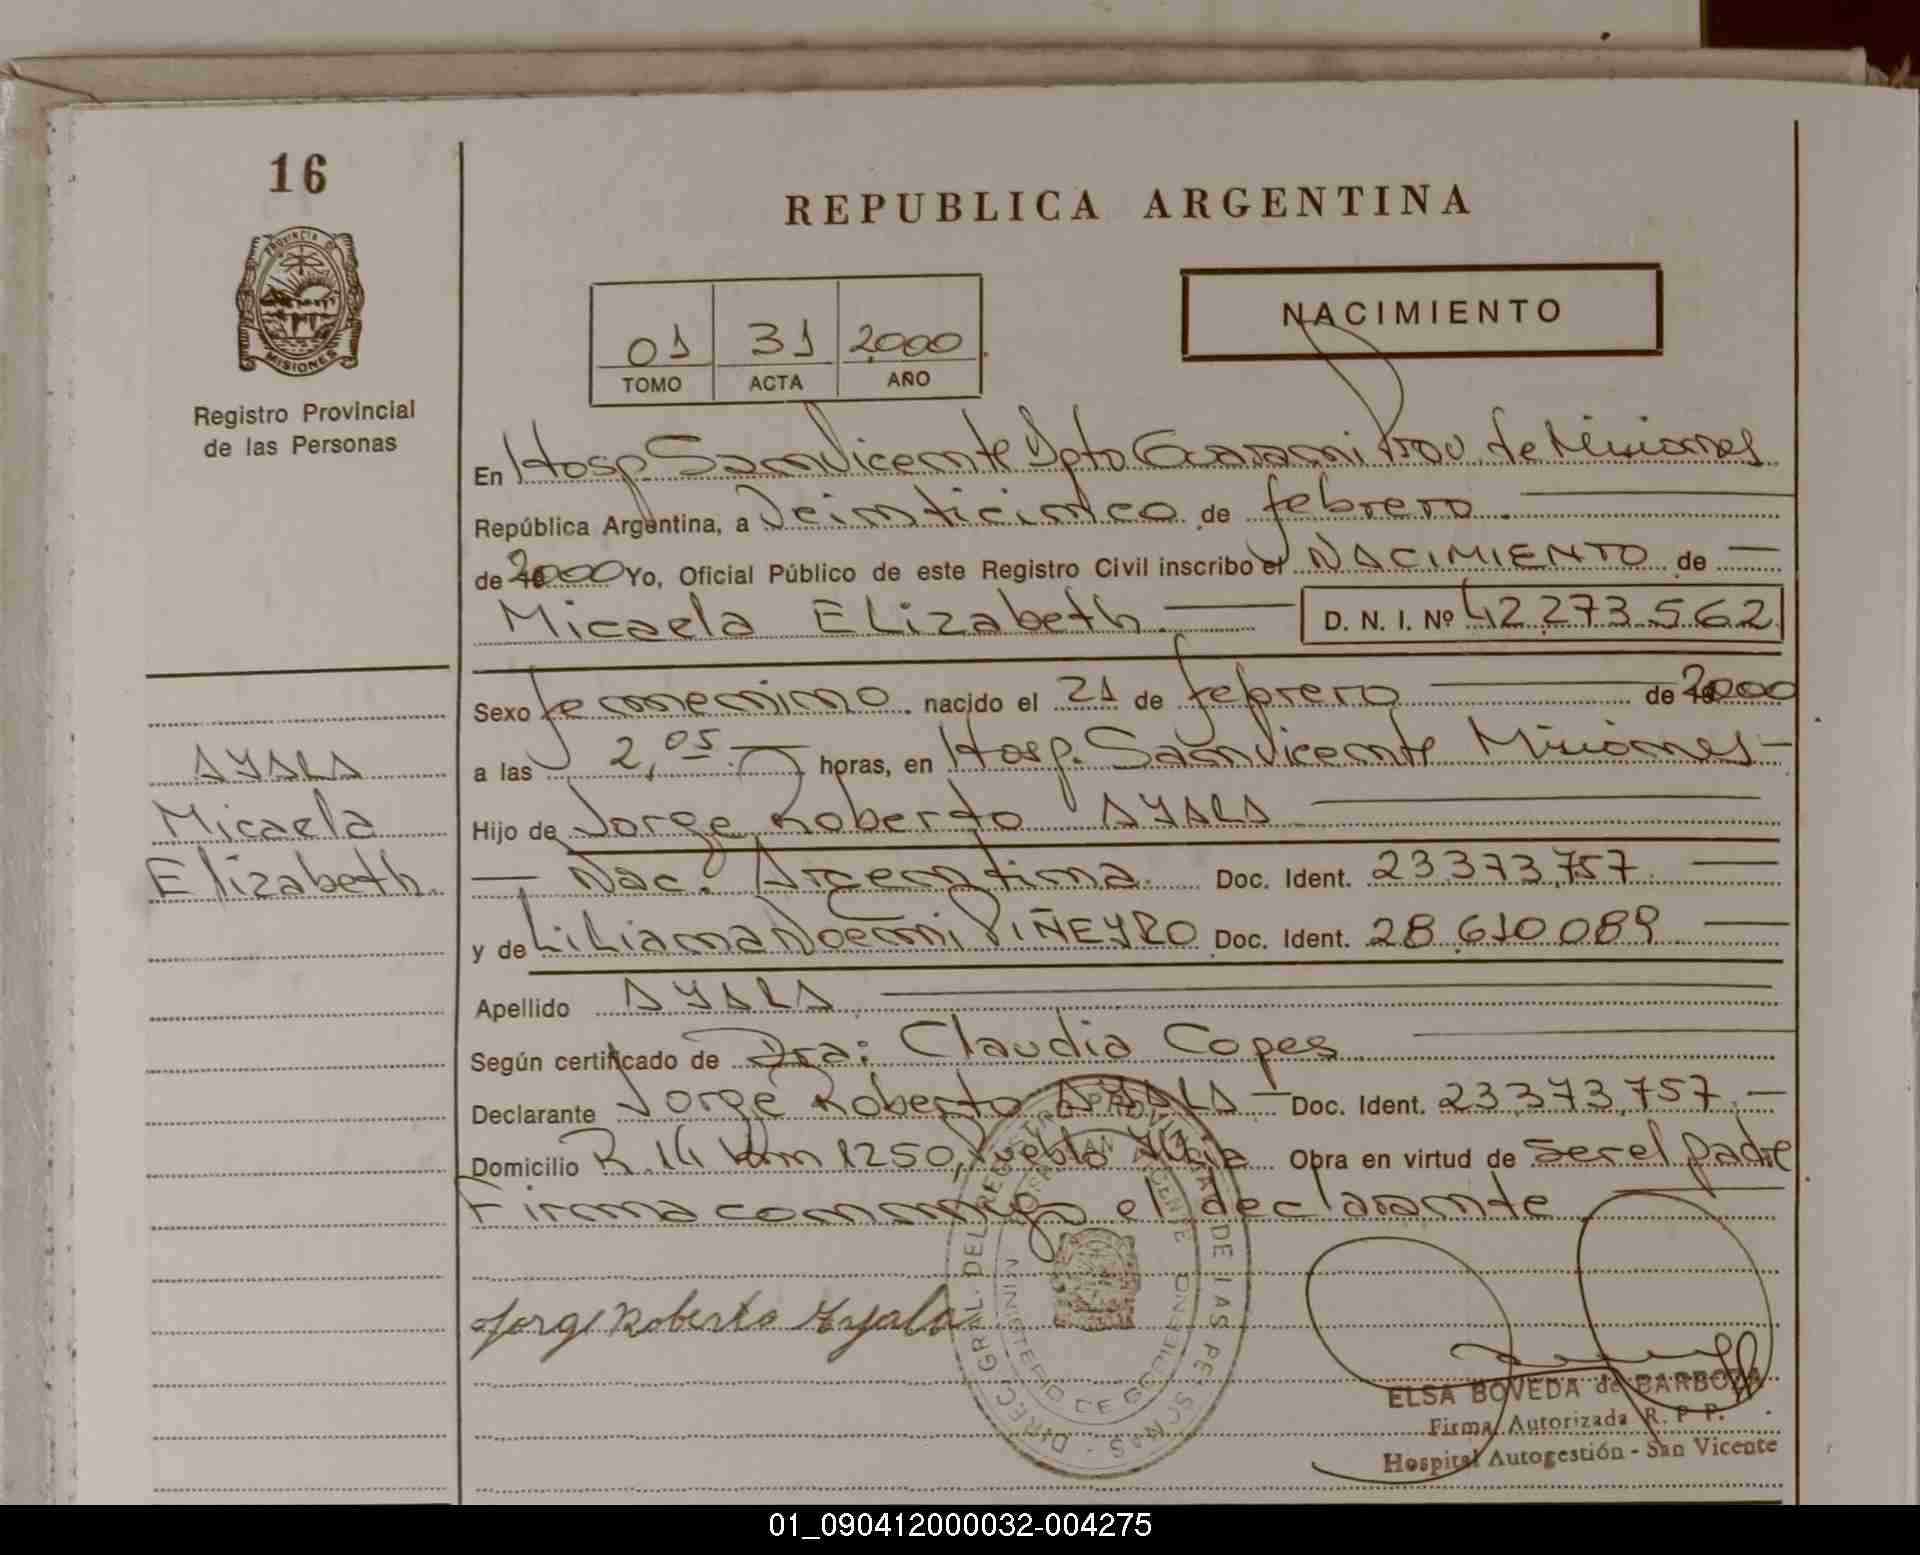 16
PROVINCIA DE
MISIONES
Registro Provincial
de las Personas
REPUBLICA ARGENTINA
01 31 2000
TOMO ACTA AÑO
NACIMIENTO
En Hosp. San Vicente Dpto Guarani Prov. de Misiones
República Argentina, a Veinticinco de febrero.
de 2000 Yo, Oficial Público de este Registro Civil inscribo el NACIMIENTO de
Micaela ELizabeth. D. N. I. Nº 42.273.562
Sexo femenino nacido el 21 de febrero de 2000
a las 2,05 horas, en Hosp. San Vicente Misiones
Hijo de Jorge Roberto AYALA
Nac. Argentina. Doc. Ident. 23.373.757
y de LiLiana Noemi PIÑEYRO Doc. Ident. 28.610.089
Apellido AYALA
Según certificado de Dra: Claudia Copes
Declarante Jorge Roberto AYALA Doc. Ident. 23.373.757
Domicilio R. 14 Km 1250, Pueblo Obra en virtud de ser el padre
Firma conmigo el declarante
AYALA
Micaela
Elizabeth
Jorge Roberto Ayala
DIREC. GRAL. DEL REGISTRO PROVINCIAL DE LAS PERSONAS
MINISTERIO DE GOBIERNO
ELSA BOVEDA de BARBOZA
Firma Autorizada R. P P.
Hospital Autogestión - San Vicente
01_090412000032-004275